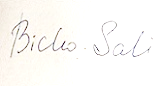 Bicho Sali